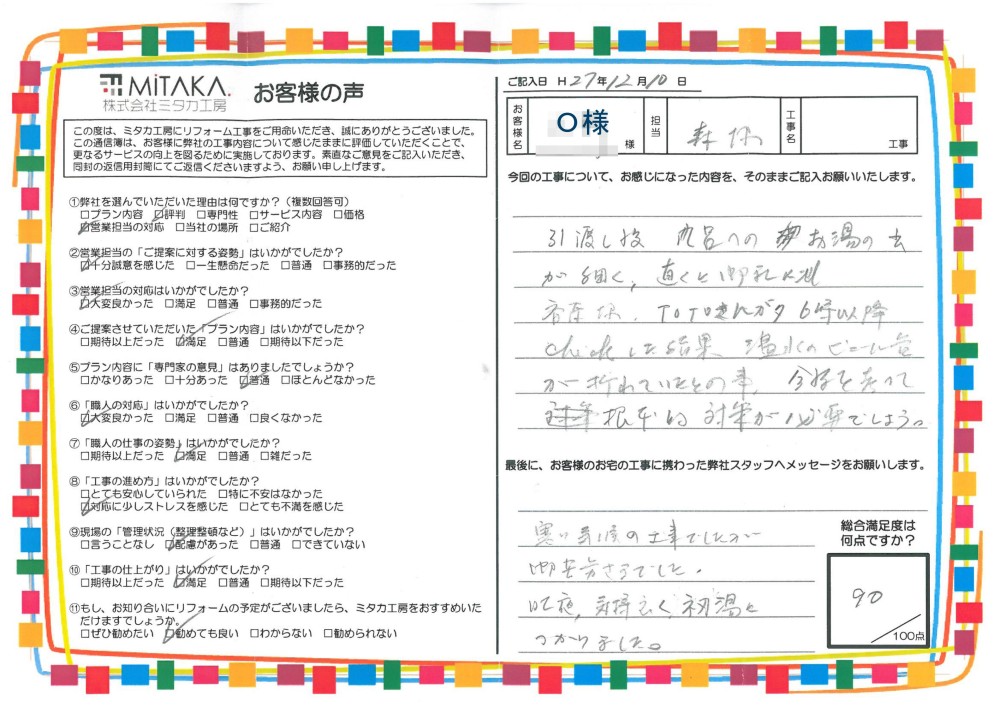 MiTAKA.
株式会社ミタカ工房
お客様の声
この度は、ミタカ工房にリフォーム工事をご用命いただき、誠にありがとうございました。
この通信簿は、お客様に弊社の工事内容について感じたままに評価していただくことで、
更なるサービスの向上を図るために実施しております。素直なご意見をご記入いただき、
同封の返信用封筒にてご返信くださいますよう、お願い申し上げます。
①弊社を選んでいただいた理由は何ですか？（複数回答可）
□プラン内容 □評判 □専門性 □サービス内容 □価格
□営業担当の対応 □当社の場所 □ご紹介
②営業担当の「ご提案に対する姿勢」はいかがでしたか？
□十分誠意を感じた □一生懸命だった □普通 □事務的だった
③営業担当の対応はいかがでしたか？
□大変良かった □満足 □普通 □事務的だった
④ご提案させていただいた「プラン内容」はいかがでしたか？
□期待以上だった □満足 □普通 □期待以下だった
⑤プラン内容に「専門家の意見」はありましたでしょうか？
□かなりあった □十分あった □普通 □ほとんどなかった
⑥「職人の対応」はいかがでしたか？
□大変良かった □満足 □普通 □良くなかった
⑦「職人の仕事の姿勢」はいかがでしたか？
□期待以上だった □満足 □普通 □雑だった
⑧「工事の進め方」はいかがでしたか？
□とても安心していられた □特に不安はなかった
□対応に少しストレスを感じた □とても不満を感じた
⑨現場の「管理状況（整理整頓など）」はいかがでしたか？
□言うことなし □配慮があった □普通 □できていない
⑩「工事の仕上がり」はいかがでしたか？
□期待以上だった □満足 □普通 □期待以下だった
⑪もし、お知り合いにリフォームの予定がございましたら、ミタカ工房をおすすめいた
だけますでしょうか。
□ぜひ勧めたい □勧めても良い □わからない □勧められない
ご記入日 H 27年 12月 10日
お客様名 O様 様 担当 森様 工事名 工事
今回の工事について、お感じになった内容を、そのままご記入お願いいたします。
引渡し後 風呂への お湯の出
が細く、直ぐと御社
TOTOさんが夕6時以降
checkした結果 温水のビニール管
が折れていたとの事、
根本的対策が必要でしょう。
最後に、お客様のお宅の工事に携わった弊社スタッフへメッセージをお願いします。
寒い時候の工事でしたが
御苦労さまでした。
昨夜、気持よく初湯を
つかりました。
総合満足度は
何点ですか？
90
100点